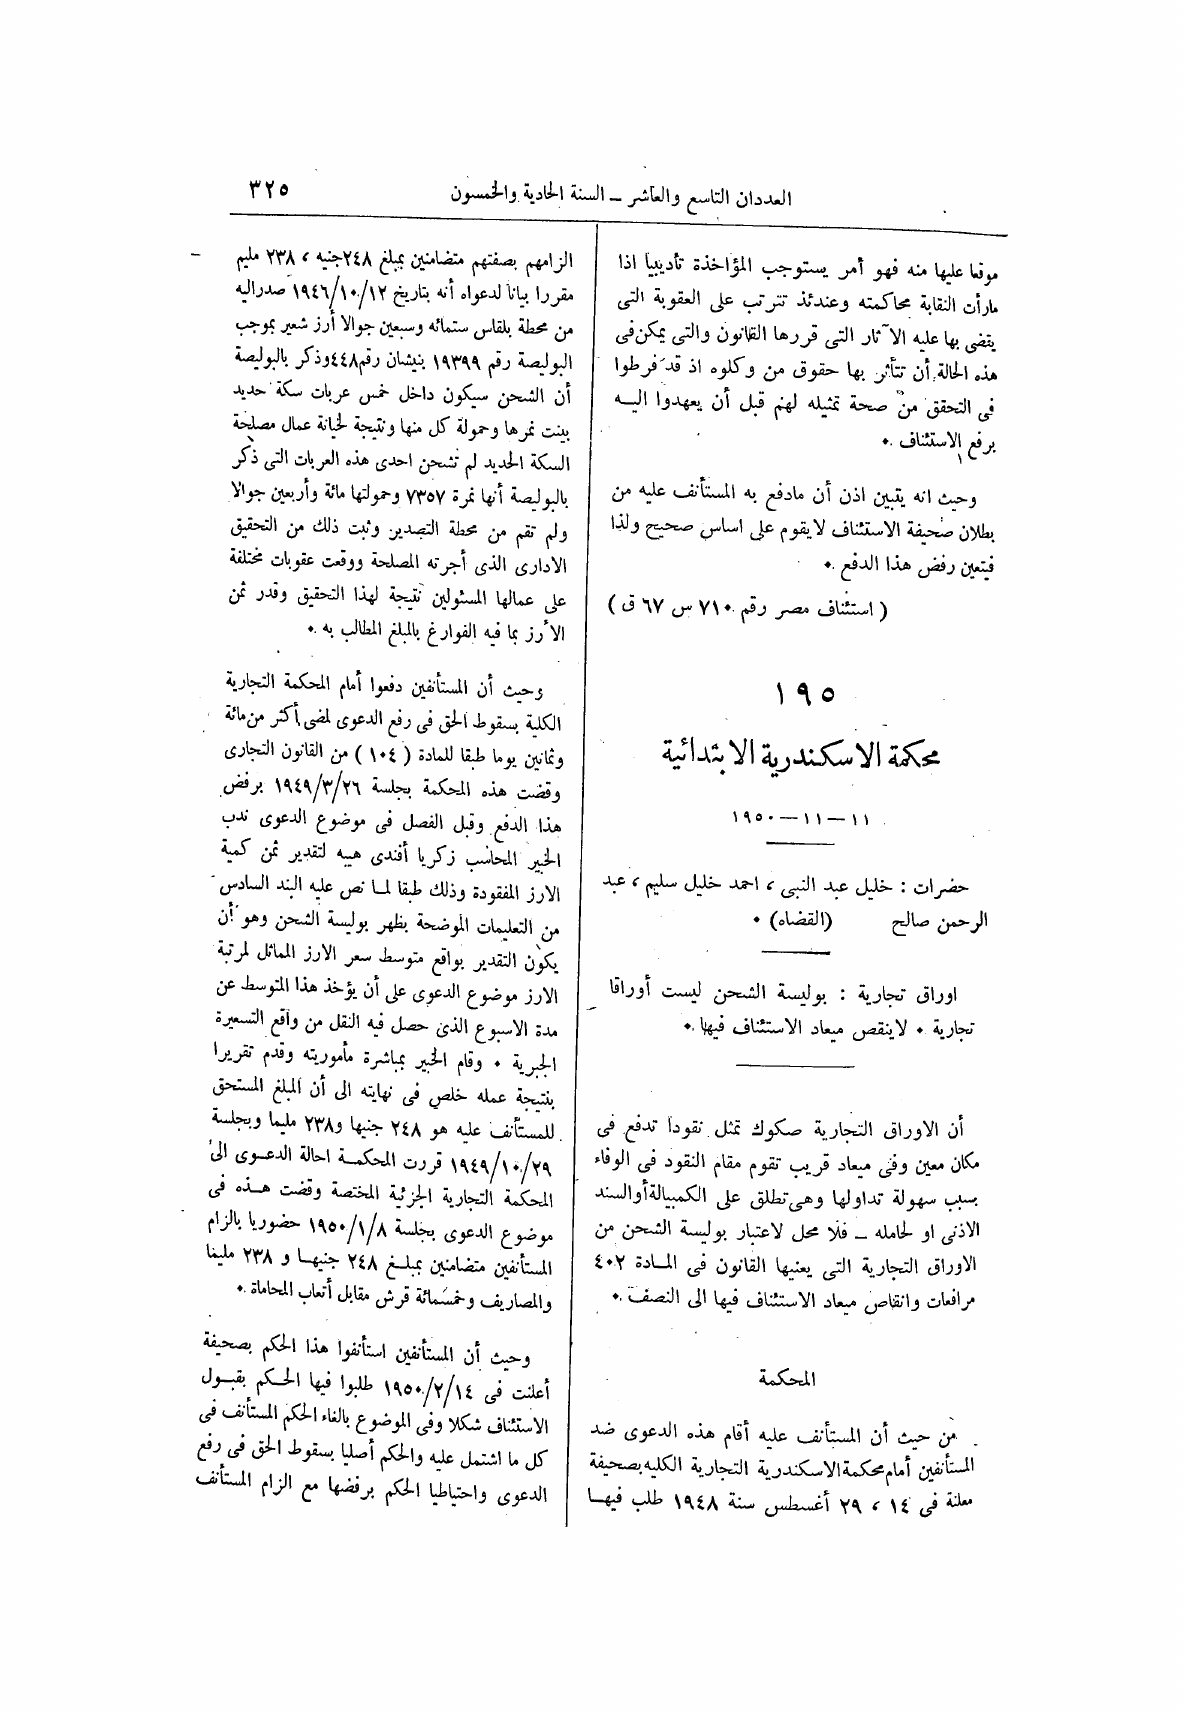 العددان التاسع والعاشر — السنة الحادية والخمسون
٣٢٥
موقعا عليها منه فهو أمر يستوجب المؤاخذة تأديبيا اذا
مارأت النقابة محاكمته وعندئذ تترتب على العقوبة التى
يقضى بها عليه الآثار التى قررها القانون والتى يمكن فى
هذه الحالة أن تتأثر بها حقوق من وكلوه اذ قد فرطوا
فى التحقق من صحة تمثيله لهم قبل أن يعهدوا اليه
برفع الاستئناف ٠
وحيث انه يتبين اذن أن مادفع به المستأنف عليه من
بطلان صحيفة الاستئناف لا يقوم على اساس صحيح ولذا
فيتعين رفض هذا الدفع ٠
( استئناف مصر رقم ٧١٠ س ٦٧ ق )
١٩٥
محكمة الاسكندرية الابتدائية
١١ — ١١ — ١٩٥٠
حضرات : خليل عبد النبى ، احمد خليل سليم ، عبد
الرحمن صالح (القضاه) ٠
اوراق تجارية : بوليسة الشحن ليست أوراقا
تجارية ٠ لاينقص ميعاد الاستئناف فيها ٠
أن الاوراق التجارية صكوك تمثل نقودا تدفع فى
مكان معين وفى ميعاد قريب تقوم مقام النقود فى الوفاء
بسبب سهولة تداولها وهى تطلق على الكمبيالة أو السند
الاذنى او لحامله — فلا محل لاعتبار بوليسة الشحن من
الاوراق التجارية التى يعنيها القانون فى المادة ٤٠٢
مرافعات وانقاص ميعاد الاستئناف فيها الى النصف ٠
المحكمة
من حيث أن المستأنف عليه أقام هذه الدعوى ضد
المستأنفين أمام محكمة الاسكندرية التجارية الكليه بصحيفة
معلنة فى ١٤ ، ٢٩ أغسطس سنة ١٩٤٨ طلب فيها
الزامهم بصفتهم متضامنين بمبلغ ٢٤٨جنيه ، ٢٣٨ مليم
مقررا بيانا لدعواه أنه بتاريخ ١٢/ ١٠/ ١٩٤٦ صدراليه
من محطة بلقاس ستمائه وسبعين جوالا أرز شعير بموجب
البوليصة رقم ١٩٣٩٩ بنيشان رقم٤٤٨وذكر بالبوليصة
أن الشحن سيكون داخل خمس عربات سكة حديد
بينت نمرها وحمولة كل منها ونتيجة لخيانة عمال مصلحة
السكة الحديد لم تشحن احدى هذه العربات التى ذكر
بالبوليصة أنها نمرة ٧٣٥٧ وحمولتها مائة وأربعين جوالا
ولم تقم من محطة التصدير وثبت ذلك من التحقيق
الادارى الذى أجرته المصلحة ووقعت عقوبات مختلفة
على عمالها المسئولين نتيجة لهذا التحقيق وقدر ثمن
الأرز بما فيه الفوارغ بالمبلغ المطالب به ٠
وحيث أن المستأنفين دفعوا أمام المحكمة التجارية
الكلية بسقوط الحق فى رفع الدعوى لمضى أكثر من مائة
وثمانين يوما طبقا للمادة ( ١٠٤ ) من القانون التجارى
وقضت هذه المحكمة بجلسة ٢٦/ ٣/ ١٩٤٩ برفض
هذا الدفع وقبل الفصل فى موضوع الدعوى ندب
الخبير المحاسب زكريا أفندى هيبه لتقدير ثمن كمية
الارز المفقودة وذلك طبقا لما نص عليه البند السادس
من التعليمات الموضحة بظهر بوليسة الشحن وهو أن
يكون التقدير بواقع متوسط سعر الارز المماثل لمرتبة
الارز موضوع الدعوى على أن يؤخذ هذا المتوسط عن
مدة الاسبوع الذى حصل فيه النقل من واقع التسعيرة
الجبرية ٠ وقام الخبير بمباشرة مأموريته وقدم تقريرا
بنتيجة عمله خلص فى نهايته الى أن المبلغ المستحق
للمستأنف عليه هو ٢٤٨ جنيها و٢٣٨ مليما وبجلسة
٢٩/ ١٠/ ١٩٤٩ قررت المحكمة احالة الدعوى الى
المحكمة التجارية الجزئية المختصة وقضت هذه فى
موضوع الدعوى بجلسة ٨/ ١/ ١٩٥٠ حضوريا بالزام
المستأنفين متضامنين بمبلغ ٢٤٨ جنيها و ٢٣٨ مليما
والمصاريف وخمسمائة قرش مقابل أتعاب المحاماة ٠
وحيث أن المستأنفين استأنفوا هذا الحكم بصحيفة
أعلنت فى ١٤/ ٢/ ١٩٥٠ طلبوا فيها الحكم بقبول
الاستئناف شكلا وفى الموضوع بالغاء الحكم المستأنف فى
كل ما اشتمل عليه والحكم أصليا بسقوط الحق فى رفع
الدعوى واحتياطيا الحكم برفضها مع الزام المستأنف